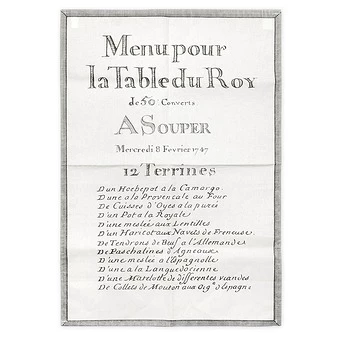 Menu pour
la Table du Roy
de 50 Converts
A Souper
Mercredi 8 Fevrier 1747
12 Terrines
D'un Hochepot a la Camargo.
D'une a la Provencale au Four
De Cuisses d'Oyes a la purée
D'un Pot a la Royale
D'une meslée aux Lentilles
D'un Haricot aux Navets de Freneuse.
De Tendrons de Bœuf a l'Allemande
De Paschalines d'Agneaux
D'une meslée a l'Espagnolle
D'une a la Languedocienne
D'une Matelotte de differentes viandes
De Collets de Mouton aux Oig.ˢ d'Espagne